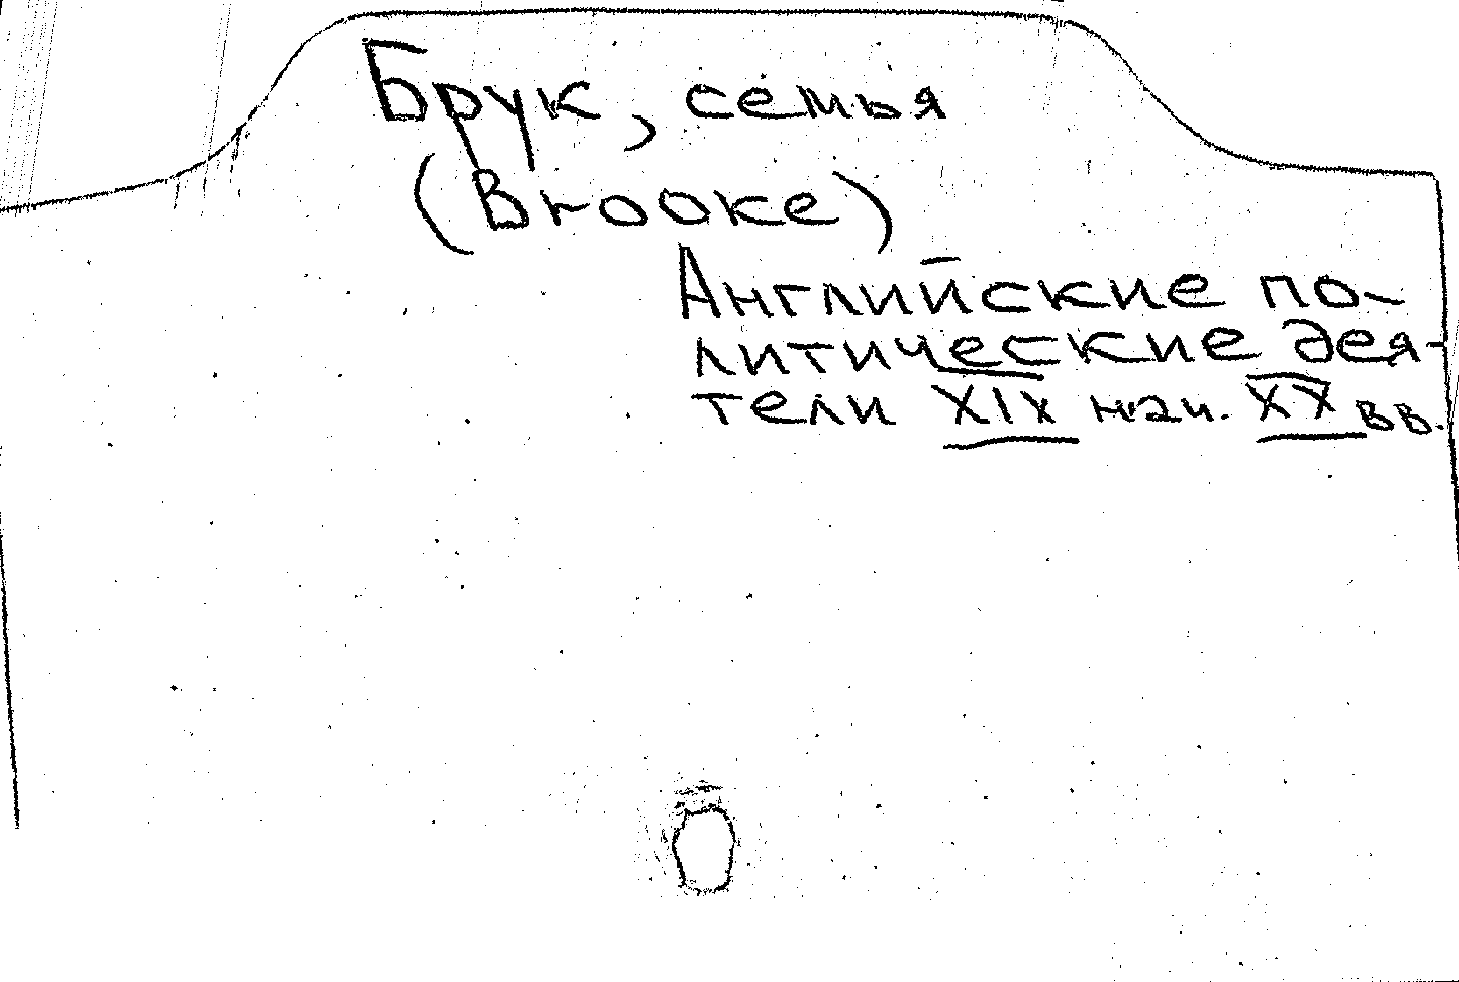 Брук, семья
(Brooke)
Английские по-
литические дея-
тели XIX нач. XX вв.